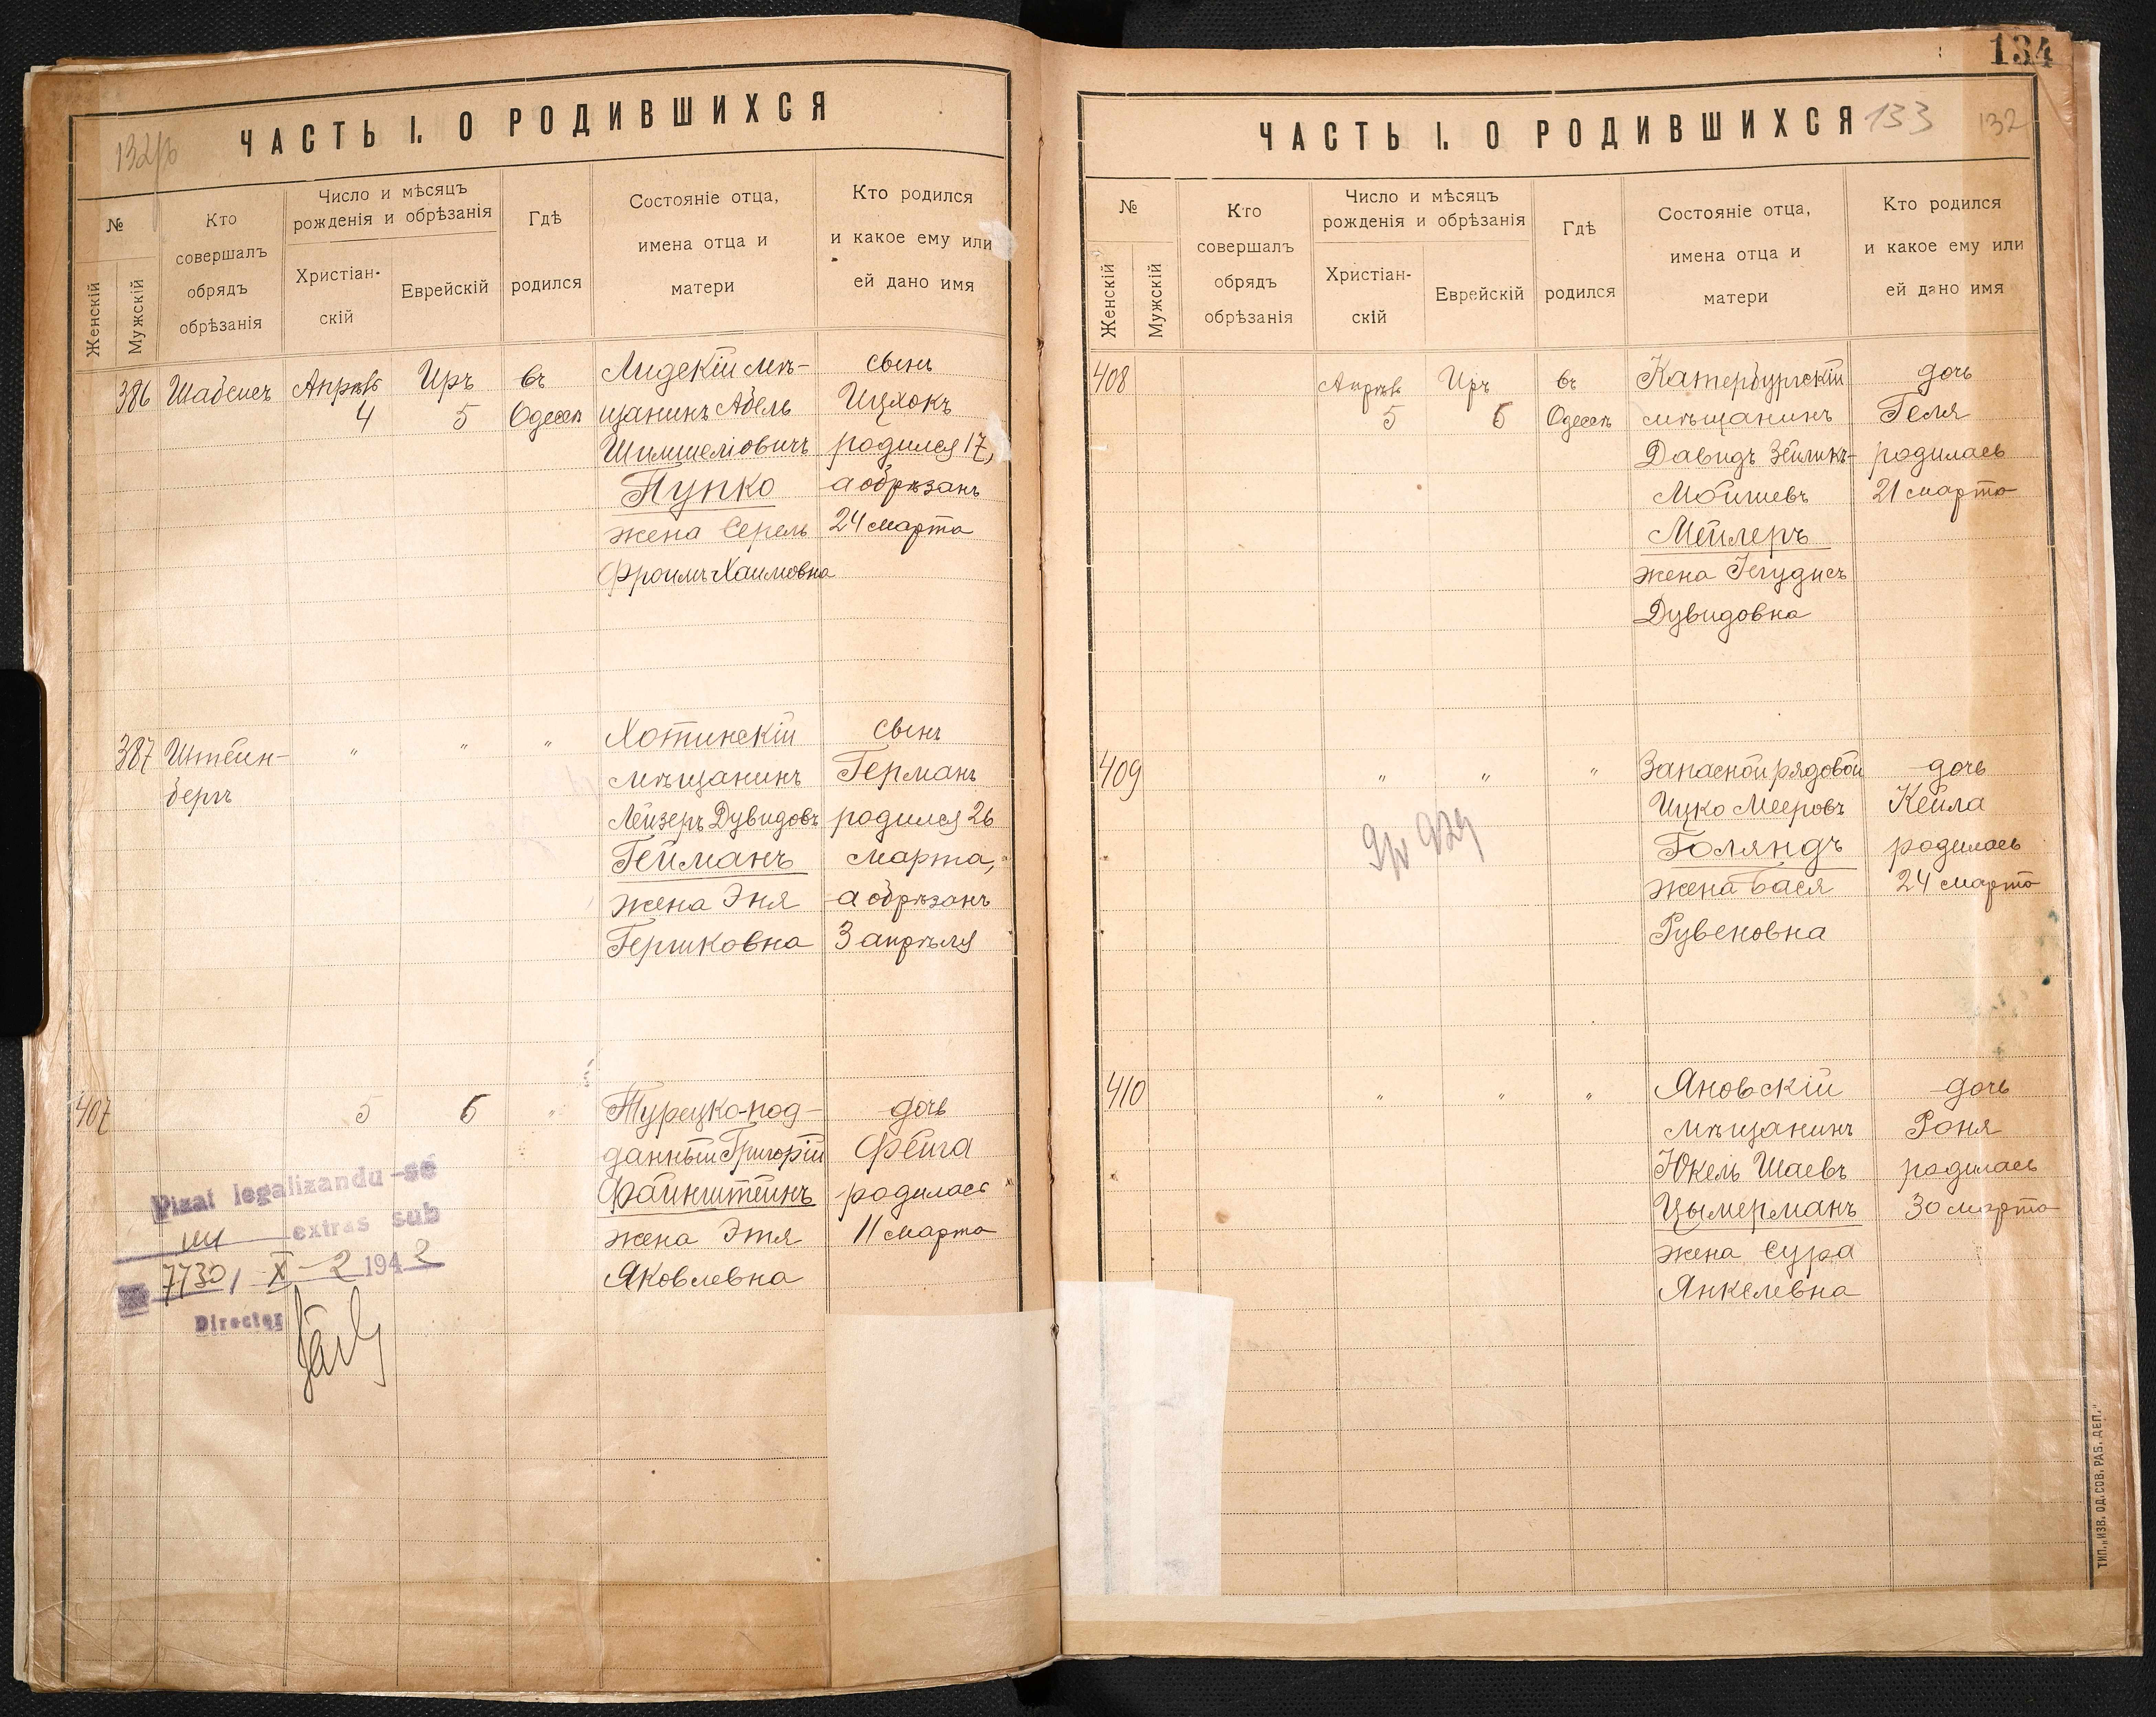 132/б
ЧАСТЬ I. О РОДИВШИХСЯ
№
Женскій
Мужскій
Кто
совершалъ
обрядъ
обрѣзанія
Число и мѣсяцъ
рожденія и обрѣзанія
Христіан-
скій
Еврейскій
Гдѣ
родился
Состояніе отца,
имена отца и
матери
Кто родился
и какое ему или
ей дано имя
386
Шабсисъ
Апрѣль
4
Иръ
5
въ
Одессѣ
Лидскій мѣ-
щанинъ Абель
Шимшеліовичъ
Пупко
жена Серель
Фроимъ-Хаимовна
сынъ
Ицхокъ
родился 17,
а обрѣзанъ
24 марта
387
Штейн-
бергъ
"
"
"
Хотинскій
мѣщанинъ
Лейзеръ Дувидовъ
Гейманъ
жена Эня
Гершковна
сынъ
Германъ
родился 26
марта,
а обрѣзанъ
3 апрѣля
407
5
6
"
Турецко-под-
данный Григорій
Файнштейнъ
жена Этя
Яковлевна
дочь
Фейга
родилась
11 марта
Vizat legalizandu-se
un extras sub
7730/ X - 2 1942
Director
134
ЧАСТЬ I. О РОДИВШИХСЯ
133
132
№
Женскій
Мужскій
Кто
совершалъ
обрядъ
обрѣзанія
Число и мѣсяцъ
рожденія и обрѣзанія
Христіан-
скій
Еврейскій
Гдѣ
родился
Состояніе отца,
имена отца и
матери
Кто родился
и какое ему или
ей дано имя
408
Апрѣль
5
Иръ
6
въ
Одессѣ
Катербургскій
мѣщанинъ
Давидъ Зейликъ-
Мошиевъ
Мейлеръ
жена Іегудисъ
Дувидовна
дочь
Геля
родилась
21 марта
409
"
"
"
Запасной рядовой
Ицко Мееровъ
Голяндъ
жена Бася
Рувеновна
дочь
Кейла
родилась
24 марта
410
"
"
"
Яновскій
мѣщанинъ
Юкель Шаевъ
Цымерманъ
жена Сура
Янкелевна
дочь
Роня
родилась
30 марта
ТИП. „ИЗВ. ОД. СОВ. РАБ. ДЕП."